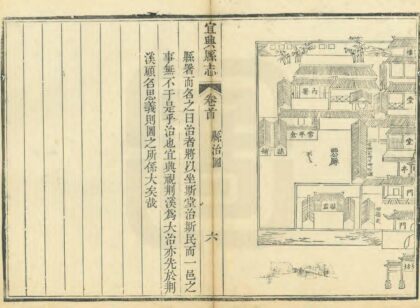 堂
堂
門
門
內署
常平倉
宜興縣志
卷首
縣治圖
六
縣署而名之曰治者將以坐斯堂治斯民而一邑之
事無不于是乎治也宜興視荆溪爲大治亦先於荆
溪顧名思義則圖之所係大矣哉